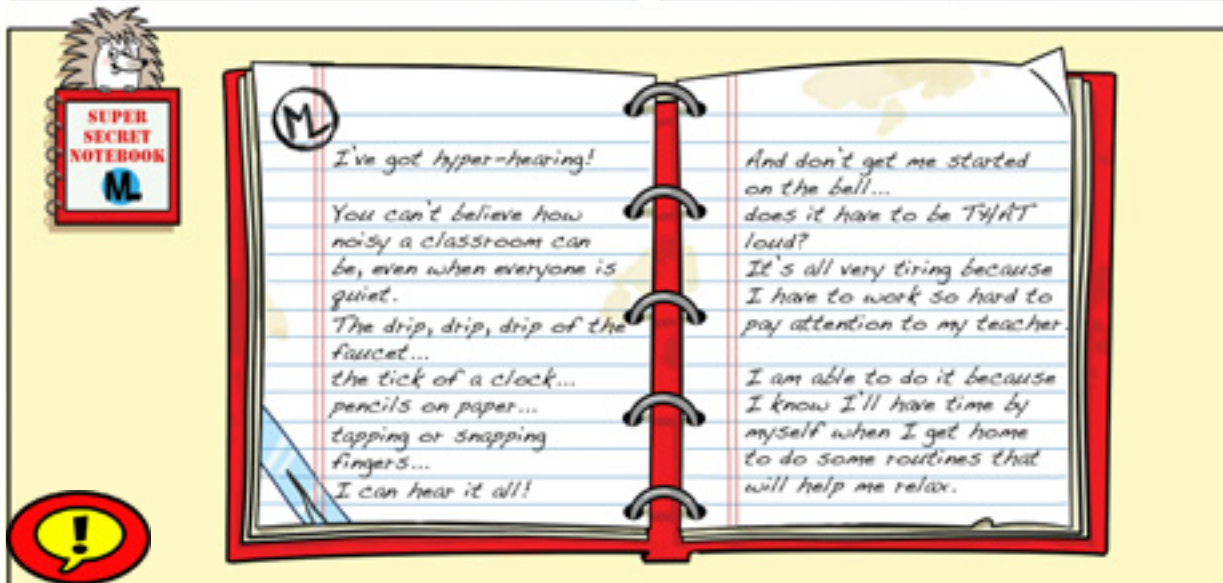 SUPER
SECRET
NOTEBOOK
ML
ML
I've got hyper-hearing!
You can't believe how
noisy a classroom can
be, even when everyone is
quiet.
The drip, drip, drip of the
faucet...
the tick of a clock...
pencils on paper...
tapping or snapping
fingers...
I can hear it all!
And don't get me started
on the bell...
does it have to be THAT
loud?
It's all very tiring because
I have to work so hard to
pay attention to my teacher.
I am able to do it because
I know I'll have time by
myself when I get home
to do some routines that
will help me relax.
!